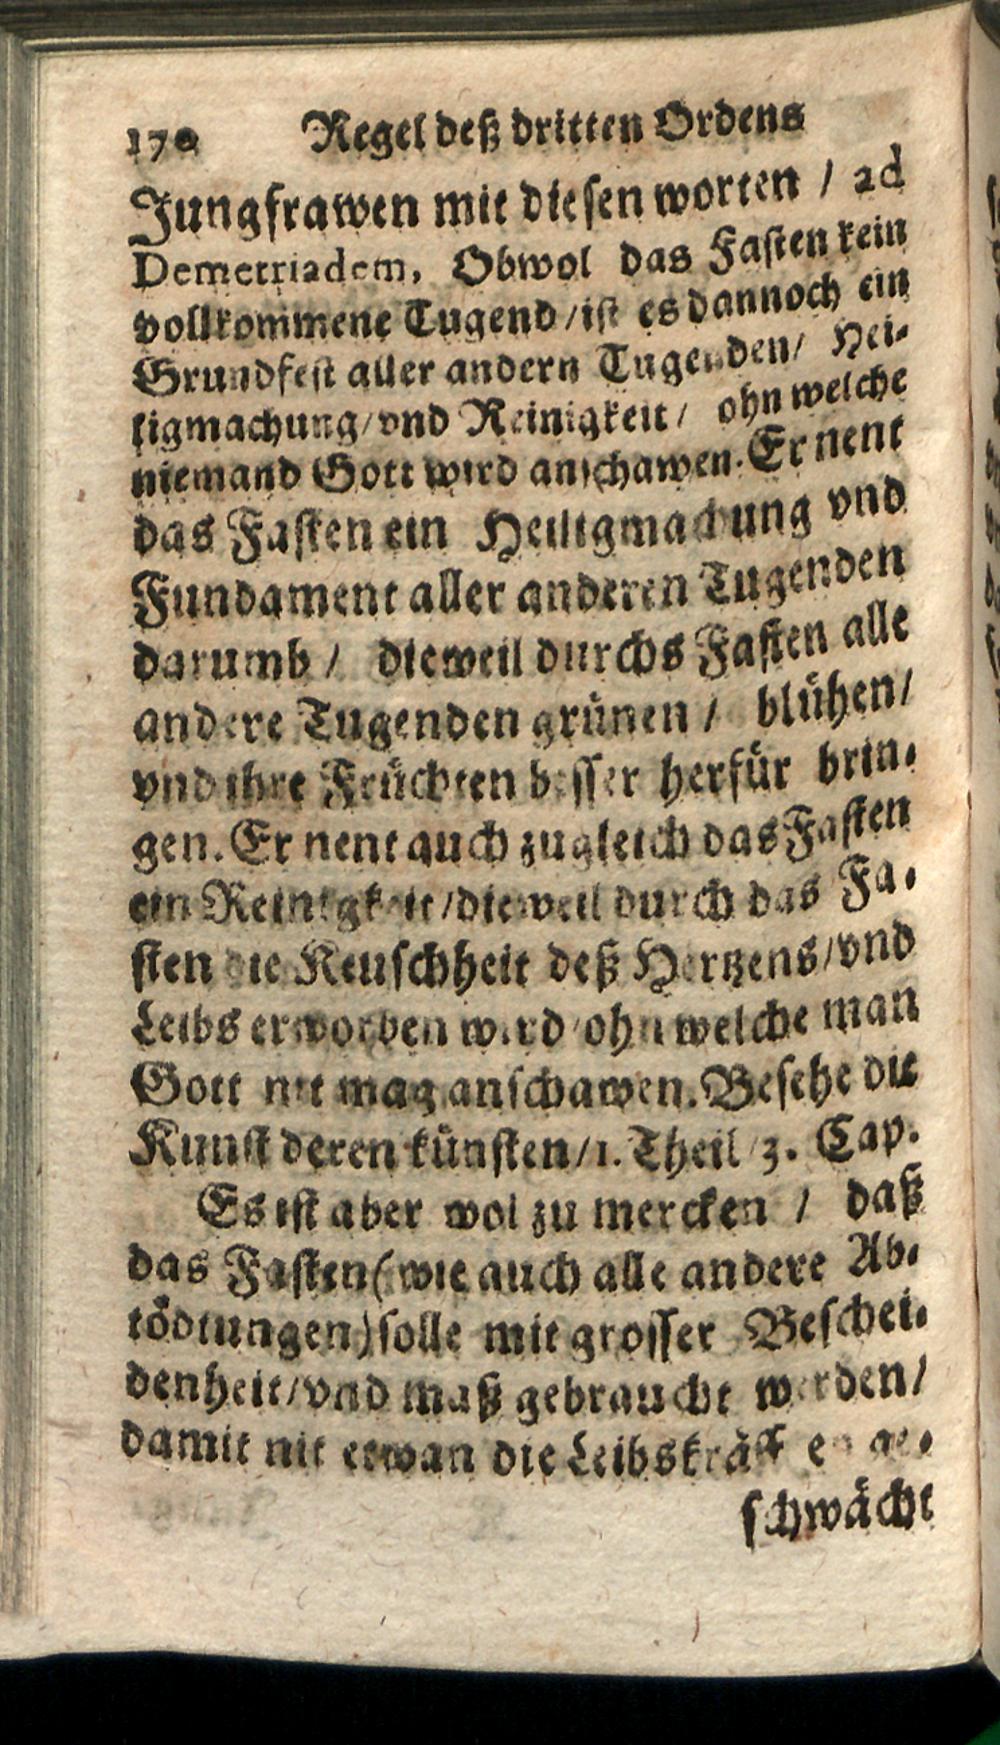 170 Regel deß dritten Ordens
Jungfrawen mit diesen worten / ad
Demetriadem, Obwol das Fasten kein
vollkommene Tugend / ist es dannoch ein
Grundfest aller andern Tugenden / Hei-
ligmachung / vnd Reinigkeit / ohn welche
niemand Gott wird anschawen. Er nent
das Fasten ein Heiligmachung vnd
Fundament aller anderen Tugenden
darumb / dieweil durchs Fasten alle
andere Tugenden grünen / blühen /
vnd ihre Früchten besser herfür brin-
gen. Er nent auch zugleich das Fasten
ein Reinigkeit / dieweil durch das Fa-
sten die Keuschheit deß Hertzens / vnd
Leibs erworben wird / ohn welche man
Gott nit mag anschawen. Besehe die
Kunst deren künsten / 1. Theil / 3. Cap.
Es ist aber wol zu mercken / daß
das Fasten (wie auch alle andere Ab-
tödtungen) solle mit grosser Beschei-
denheit / vnd maß gebraucht werden /
damit nit etwan die Leibskräfften ge-
schwächt